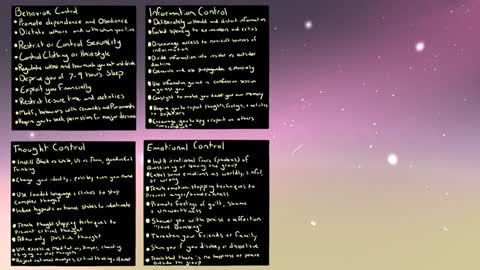 Behavior Control
• Promote dependence and Obedience
• Dictate where and with whom you live
• Restrict or Control Sexuality
• Control Clothing or Hairstyle
• Regulate what and how much you eat and drink
• Deprive you of 7-9 hours Sleep
• Exploit you financially
• Restrict leisure time and activities
• Modify behaviors with rewards and Punishments
• Require you to seek permission for major decisions
Information Control
• Deliberately withhold and distort information
• Forbid speaking to ex-members and critics
• Discourage access to non-cult sources of
information
• Divide information into insider vs outsider
doctrine
• Generate and use propaganda extensively
• Use information gained in confession sessions
against you
• Gaslight to make you doubt your own Memory
• Require you to report thoughts, feelings, & activities
to superiors
• Encourage you to spy & report on others'
"misconduct"
Thought Control
• Instill Black vs White, Us vs Them, good vs evil
thinking
• Change your identity, possibly even your name
• Use loaded language & cliches to stop
complex thought
• Induce hypnotic or trance states to indoctrinate
• Teach thought-stopping techniques to
prevent critical thought
• Allow only positive thought
• Use excessive meditation, prayer, chanting,
singing to
• Reject rational analysis, critical thinking,
Emotional Control
• Instill irrational fears (phobias) of
questioning or leaving the group
• Label some emotions as worldly, sinful,
or wrong
• Teach emotion-stopping techniques to
prevent anger, homesickness
• Promote feelings of guilt, shame
& unworthiness
• Shower you with praise & affection
"love Bombing"
• Threaten your friends or family
• Shun you if you disobey or disbelieve
• Teach that there is no happiness or peace
outside the group